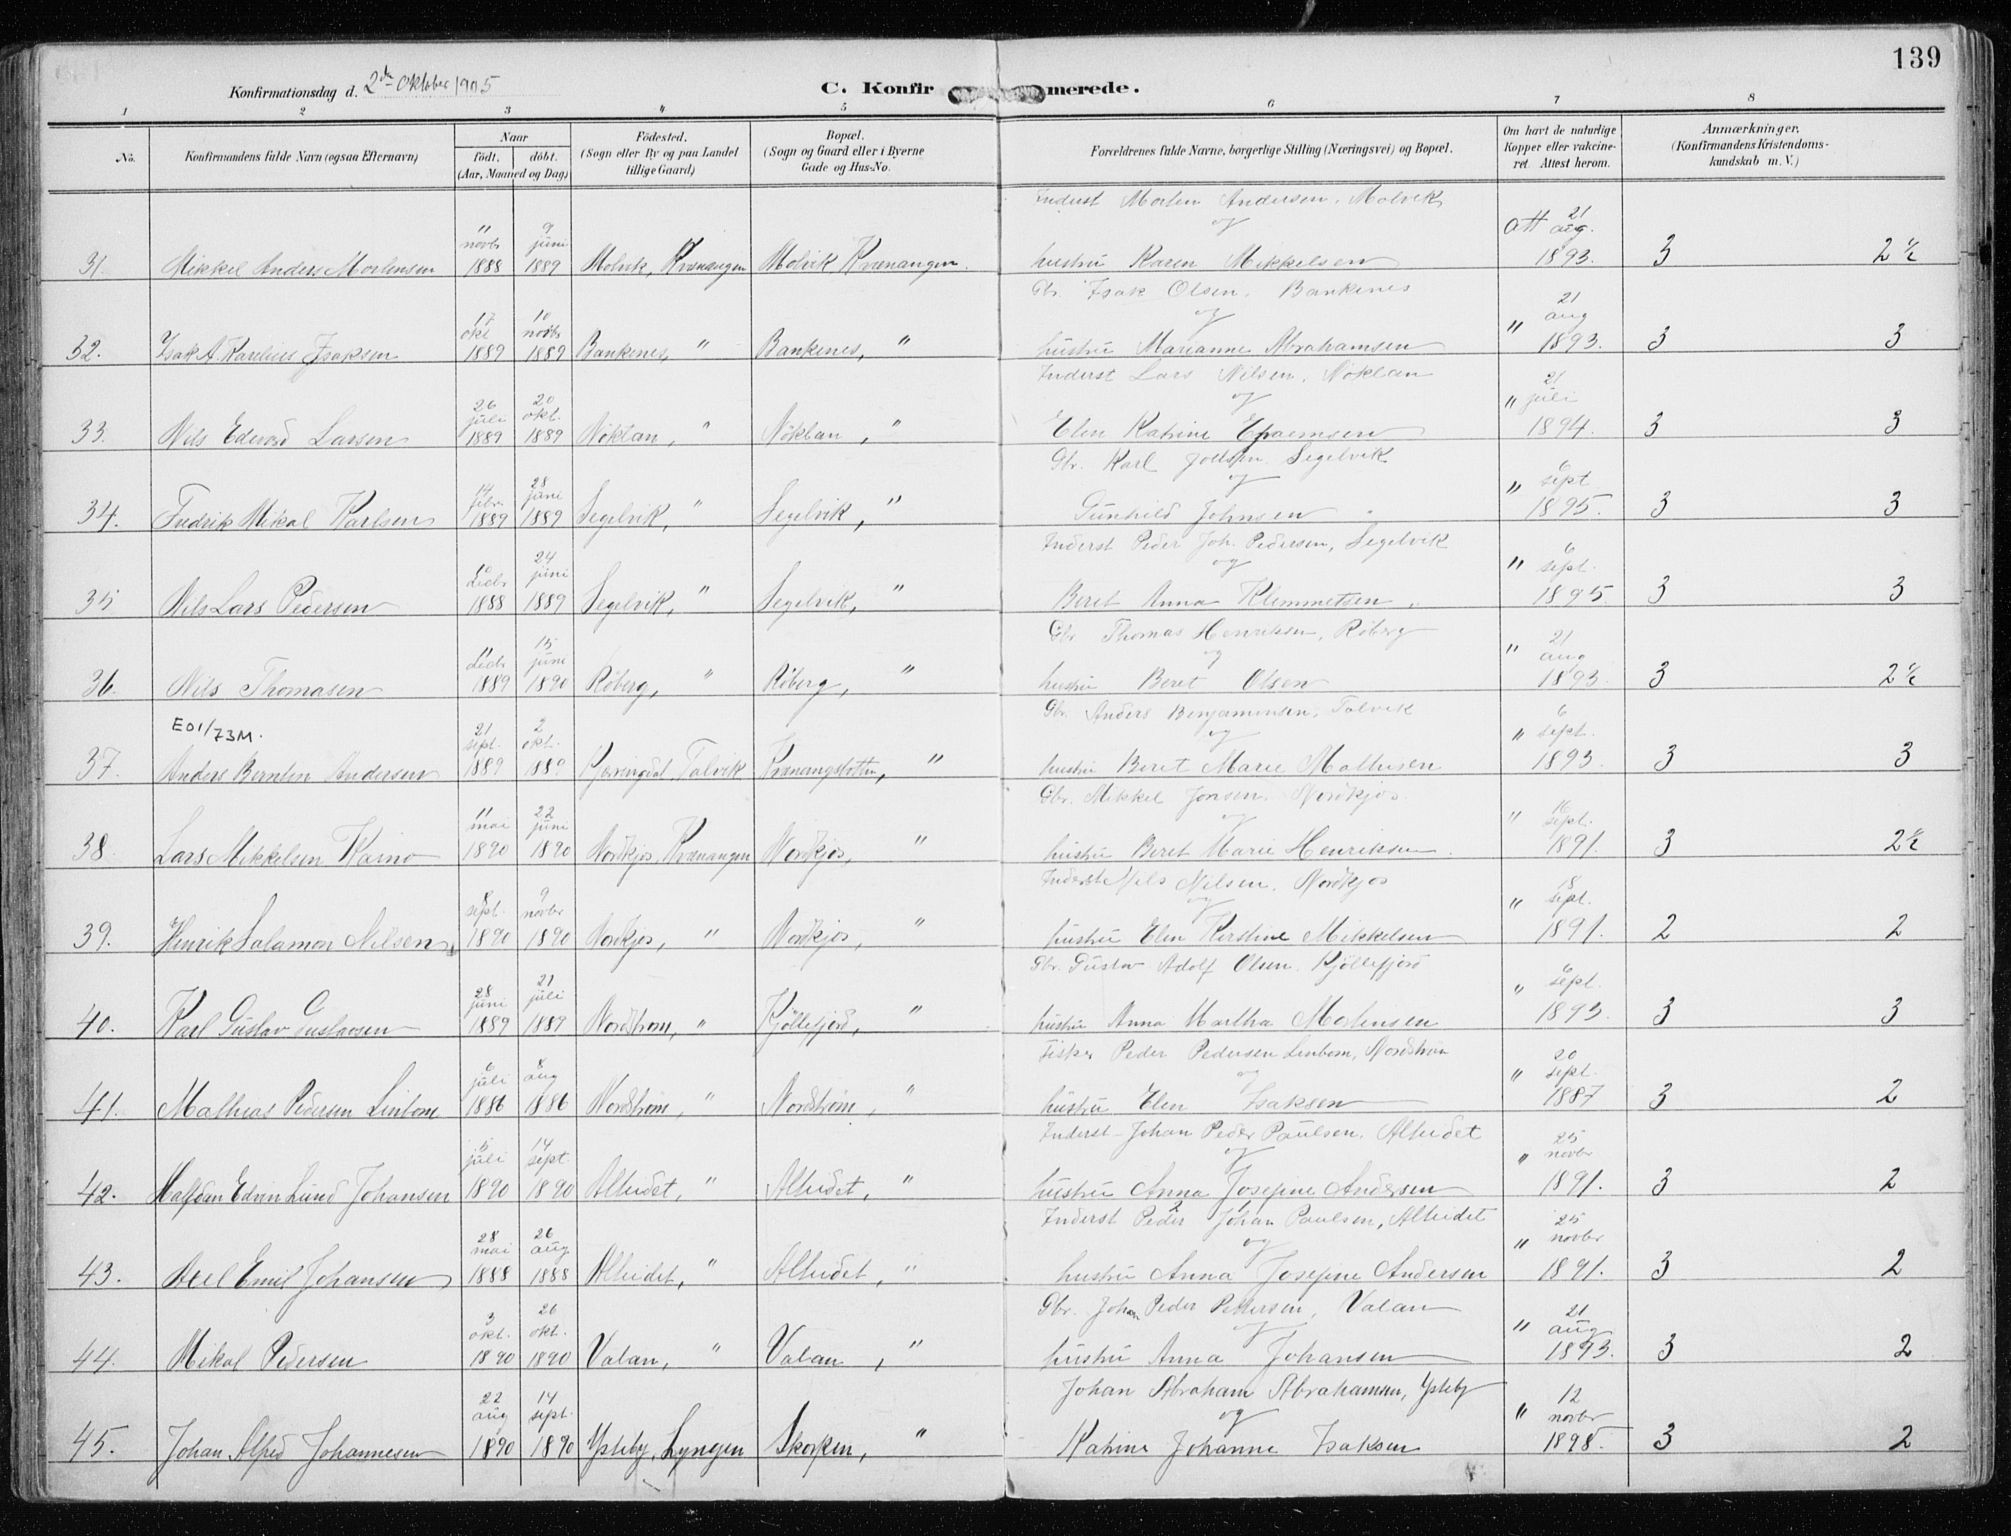 139
Konfirmationsdag d. 2den Oktober 1905
C. Konfirmerede.
1 2 3 4 5 6 7 8
No.
Konfirmandens fulde Navn (ogsaa Efternavn)
Naar
födt. döbt.
(Aar, Maaned og Dag)
Födested.
(Sogn eller By og paa Landet
tillige Gaard)
Bopæl.
(Sogn og Gaard eller i Byerne
Gade og Hus-No.
Forældrenes fulde Navne, borgerlige Stilling (Næringsvei) og Bopæl.
Om havt de naturlige
Kopper eller vaccine-
ret Attest herom.
Anmærkninger.
(Konfirmandens Kristendoms-
kundskab m. V.)
Inderst Morten Andersen, Molvik
og
31. Mikkel Anders Mortensen 11 novbr 1888 9 juni 1889 Molvik, Kvænangen Molvik Kvænangen. hustru Karen Mikkelsen Att 21 aug. 1893. 3 2½
Gbr. Isak Olsen, Bankenes
og
32. Isak A. Karelius Isaksen 17 okt 1889 10 novbr 1889 Bankenes, " Bankenes, " hustru Marianne Abrahamsen " 21 aug 1893. 3 3
Inderst Lars Nilsen, Nöklan
og
33. Nils Edevard Larsen 26 juli 1889 20 okt. 1889 Nöklan, " Nöklan, " Elen Katrine Efraemsen " 21 juli 1894. 3 3
Gbr. Karl Joelsen, Segelvik
og
34. Fredrik Mikal Karlsen 14 febr. 1889 28 juni 1889 Segelvik, " Segelvik, " Gunhild Johnsen " 6 sept 1895. 3 3
Inderst Peder Joh. Pedersen, Segelvik
og
35 Nils Lars Pedersen decbr 1888 24 juni 1889 Segelvik, " Segelvik, " Beret Anna Klemmetsen " 6 sept. 1895. 3 3
Gbr Thomas Henriksen, Röberg
og
36. Nils Thomasen 11 decbr 1889 15 juni 1890 Röberg, " Röberg, " hustru Beret Olsen " 21 aug 1893. 3 2½
E01/73M.
Gbr. Anders Benjaminsen, Talvik
og
37. Anders Berntin Andersen 21 sept. 1889 2 okt. 1889 Kjerringdal Talvik Kvænangsbotten, " hustru Beret Marie Mathisen " 6 sept. 1893. 3 3
Gbr. Mikkel Jonsen, Nordkjos.
og
38. Lars Mikkelsen Kaino 11 mai 1890 22 juni 1890 Nordkjos, Kvænangen Nordkjos, " hustru Beret Marie Henriksen " 16 sept. 1891. 3 2½
Inderst Nils Nilsen, Nordkjos
og
39. Henrik Salamon Nilsen 8 sept. 1890 9 novbr 1890 Nordkjos, " Nordkjos, " hustru Elen Kirstine Mikkelsen " 18 sept. 1891. 2 2
Gbr. Gustav Adolf Olsen, Kjöllefjord
40. Karl Gustav Gustavsen 28 juni 1889 21 juli 1889 Nordstrom, " Kjöllefjord, " hustru Anna Martha Mortensen " 6 sept. 1893. 3 3
Fisker Peder Pedersen Linbom, Nordström
og
41. Mathias Pedersen Linbom 6 juli 1886 8 aug 1886 Nordström, " Nordström, " hustru Elen Isaksen " 20 sept. 1887 3 2
Inderst Johan Peder Paulsen, Alteidet
og
42. Halfdan Edvin Lund Johansen 5 juli 1890 14 sept. 1890 Alteidet, " Alteidet, " hustru Anna Josefine Andersen " 25 novbr 1891. 3 2
Inderst Peder Johan Paulsen, Alteidet
og
43. Axel Emil Johansen 28 mai 1888 26 aug 1888 Alteidet, " Alteidet, " hustru Anna Josefine Andersen " 25 novbr 1891. 3 2
Gbr. Johan Peder Pedersen, Valan
og
44. Mikal Pedersen 3 okt. 1890 26 okt. 1890 Valan, " Valan, " hustru Anna Johansen " 21 aug 1893. 3 2
Johan Abraham Abrahamsen, Ysteby
og
45. Johan Alfred Johannesen 22 aug 1890 14 sept. 1890 Ysteby, Lyngen Skorpen, " Katrine Johanne Isaksen " 12 novbr 1898. 3 2